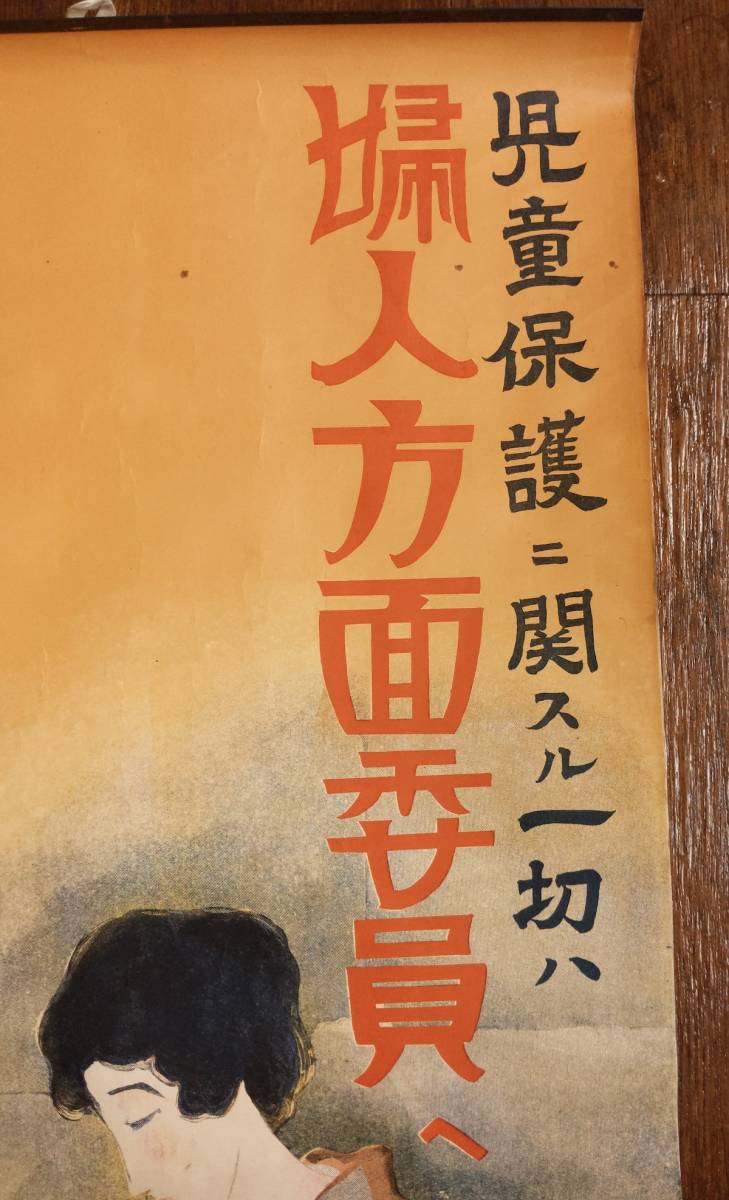 児童保護ニ関スル一切ハ
婦人方面委員へ